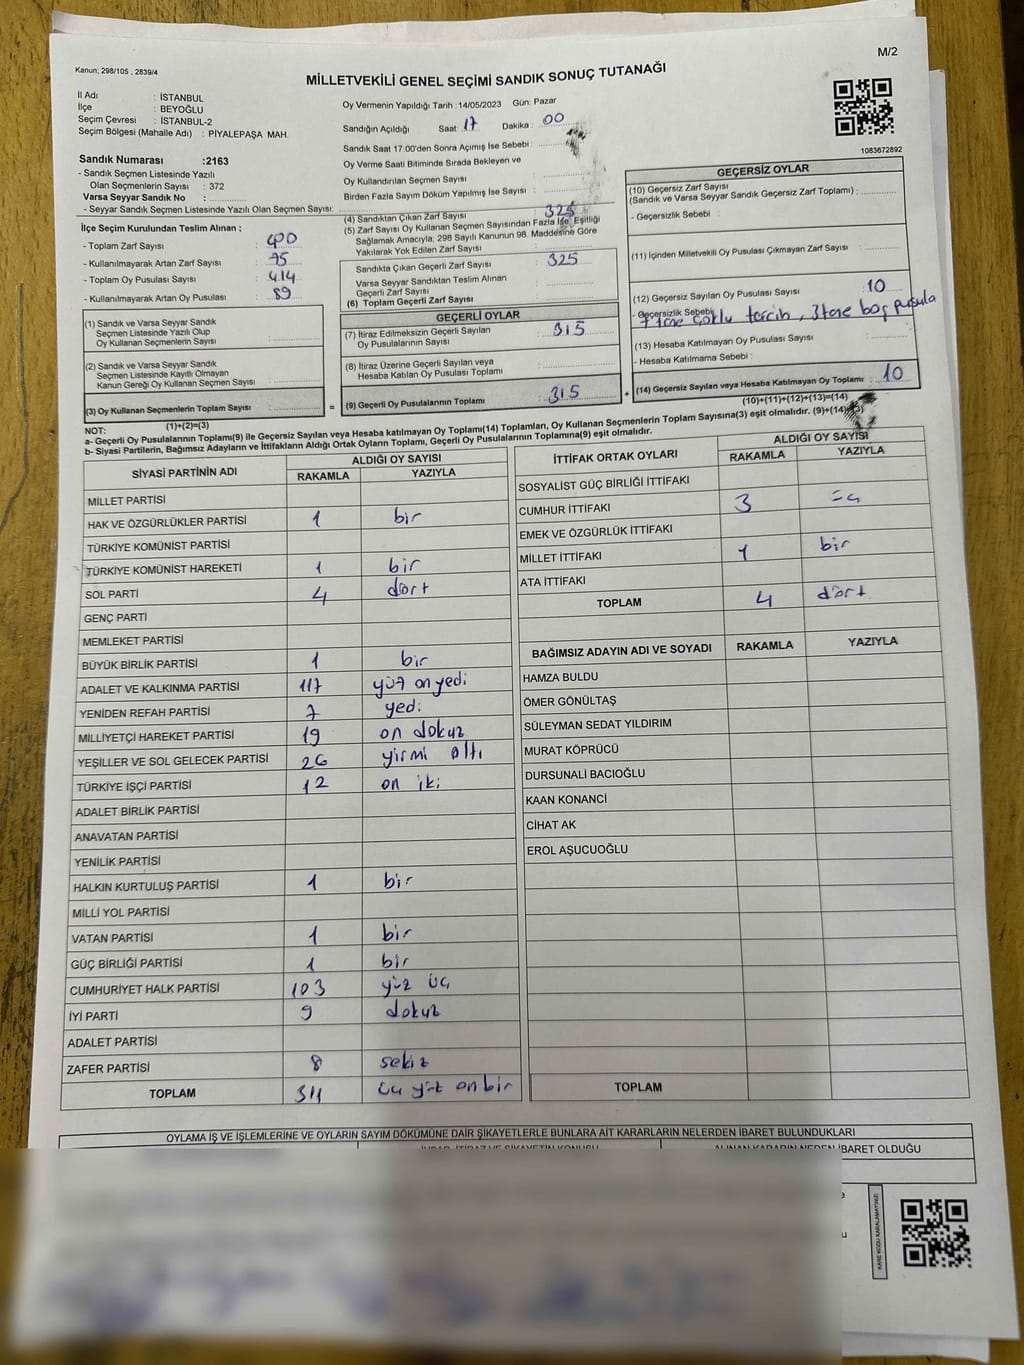 Kanun; 298/105 , 2839/4
M/2
MİLLETVEKİLİ GENEL SEÇİMİ SANDIK SONUÇ TUTANAĞI
İl Adı : İSTANBUL
İlçe : BEYOĞLU
Seçim Çevresi : İSTANBUL-2
Seçim Bölgesi (Mahalle Adı) : PİYALEPAŞA MAH.
Oy Vermenin Yapıldığı Tarih : 14/05/2023 Gün: Pazar
Sandığın Açıldığı Saat: 17 Dakika : 00
Sandık Saat 17:00'den Sonra Açımış İse Sebebi :
Oy Verme Saati Bitiminde Sırada Bekleyen ve
Oy Kullandırılan Seçmen Sayısı
Birden Fazla Sayım Döküm Yapılmış İse Sayısı :
1083672892
Sandık Numarası :2163
- Sandık Seçmen Listesinde Yazılı
Olan Seçmenlerin Sayısı : 372
Varsa Seyyar Sandık No :
- Seyyar Sandık Seçmen Listesinde Yazılı Olan Seçmen Sayısı:
İlçe Seçim Kurulundan Teslim Alınan ;
- Toplam Zarf Sayısı : 400
- Kullanılmayarak Artan Zarf Sayısı : 75
- Toplam Oy Pusulası Sayısı : 414
- Kullanılmayarak Artan Oy Pusulası : 89
(1) Sandık ve Varsa Seyyar Sandık
Seçmen Listesinde Yazılı Olup
Oy Kullanan Seçmenlerin Sayısı :
(2) Sandık ve Varsa Seyyar Sandık
Seçmen Listesinde Kayıtlı Olmayan
Kanun Gereği Oy Kullanan Seçmen Sayısı :
(3) Oy Kullanan Seçmenlerin Toplam Sayısı : =
(1)+(2)=(3)
(4) Sandıktan Çıkan Zarf Sayısı : 325
(5) Zarf Sayısı Oy Kullanan Seçmen Sayısından Fazla İse, Eşitliği
Sağlamak Amacıyla, 298 Sayılı Kanunun 98. Maddesine Göre
Yakılarak Yok Edilen Zarf Sayısı :
Sandıkta Çıkan Geçerli Zarf Sayısı : 325
Varsa Seyyar Sandıktan Teslim Alınan
Geçerli Zarf Sayısı :
(6) Toplam Geçerli Zarf Sayısı :
GEÇERLİ OYLAR
(7) İtiraz Edilmeksizin Geçerli Sayılan
Oy Pusulalarının Sayısı : 315
(8) İtiraz Üzerine Geçerli Sayılan veya
Hesaba Katılan Oy Pusulası Toplamı :
(9) Geçerli Oy Pusulalarının Toplamı : 315 +
GEÇERSİZ OYLAR
(10) Geçersiz Zarf Sayısı
(Sandık ve Varsa Seyyar Sandık Geçersiz Zarf Toplamı) :
- Geçersizlik Sebebi :
(11) İçinden Milletvekili Oy Pusulası Çıkmayan Zarf Sayısı :
(12) Geçersiz Sayılan Oy Pusulası Sayısı : 10
- Geçersizlik Sebebi: 7 tane çoklu tercih, 3 tane boş pusula
(13) Hesaba Katılmayan Oy Pusulası Sayısı :
- Hesaba Katılmama Sebebi :
(14) Geçersiz Sayılan veya Hesaba Katılmayan Oy Toplamı : 10
(10)+(11)+(12)+(13)=(14)
NOT:
a- Geçerli Oy Pusulalarının Toplamı(9) ile Geçersiz Sayılan veya Hesaba katılmayan Oy Toplamı(14) Toplamları, Oy Kullanan Seçmenlerin Toplam Sayısına(3) eşit olmalıdır. (9)+(14)=(3)
b- Siyasi Partilerin, Bağımsız Adayların ve İttifakların Aldığı Ortak Oyların Toplamı, Geçerli Oy Pusulalarının Toplamına(9) eşit olmalıdır.
SİYASİ PARTİNİN ADI ALDIĞI OY SAYISI
RAKAMLA YAZIYLA
MİLLET PARTİSİ
HAK VE ÖZGÜRLÜKLER PARTİSİ 1 bir
TÜRKİYE KOMÜNİST PARTİSİ
TÜRKİYE KOMÜNİST HAREKETİ 1 bir
SOL PARTİ 4 dört
GENÇ PARTİ
MEMLEKET PARTİSİ
BÜYÜK BİRLİK PARTİSİ 1 bir
ADALET VE KALKINMA PARTİSİ 117 yüz on yedi
YENİDEN REFAH PARTİSİ 7 yedi
MİLLİYETÇİ HAREKET PARTİSİ 19 on dokuz
YEŞİLLER VE SOL GELECEK PARTİSİ 26 yirmi altı
TÜRKİYE İŞÇİ PARTİSİ 12 on iki
ADALET BİRLİK PARTİSİ
ANAVATAN PARTİSİ
YENİLİK PARTİSİ
HALKIN KURTULUŞ PARTİSİ 1 bir
MİLLİ YOL PARTİSİ
VATAN PARTİSİ 1 bir
GÜÇ BİRLİĞİ PARTİSİ 1 bir
CUMHURİYET HALK PARTİSİ 103 yüz üç
İYİ PARTİ 9 dokuz
ADALET PARTİSİ
ZAFER PARTİSİ 8 sekiz
TOPLAM 311 üç yüz on bir
İTTİFAK ORTAK OYLARI ALDIĞI OY SAYISI
RAKAMLA YAZIYLA
SOSYALİST GÜÇ BİRLİĞİ İTTİFAKI
CUMHUR İTTİFAKI 3 üç
EMEK VE ÖZGÜRLÜK İTTİFAKI
MİLLET İTTİFAKI 1 bir
ATA İTTİFAKI
TOPLAM 4 dört
BAĞIMSIZ ADAYIN ADI VE SOYADI RAKAMLA YAZIYLA
HAMZA BULDU
ÖMER GÖNÜLTAŞ
SÜLEYMAN SEDAT YILDIRIM
MURAT KÖPRÜCÜ
DURSUNALİ BACIOĞLU
KAAN KONANCİ
CİHAT AK
EROL AŞUCUOĞLU
TOPLAM
OYLAMA İŞ VE İŞLEMLERİNE VE OYLARIN SAYIM DÖKÜMÜNE DAİR ŞİKAYETLERLE BUNLARA AİT KARARLARIN NELERDEN İBARET BULUNDUKLARI
İBARET OLDUĞU
KARE KODU KARALAMAYINIZ